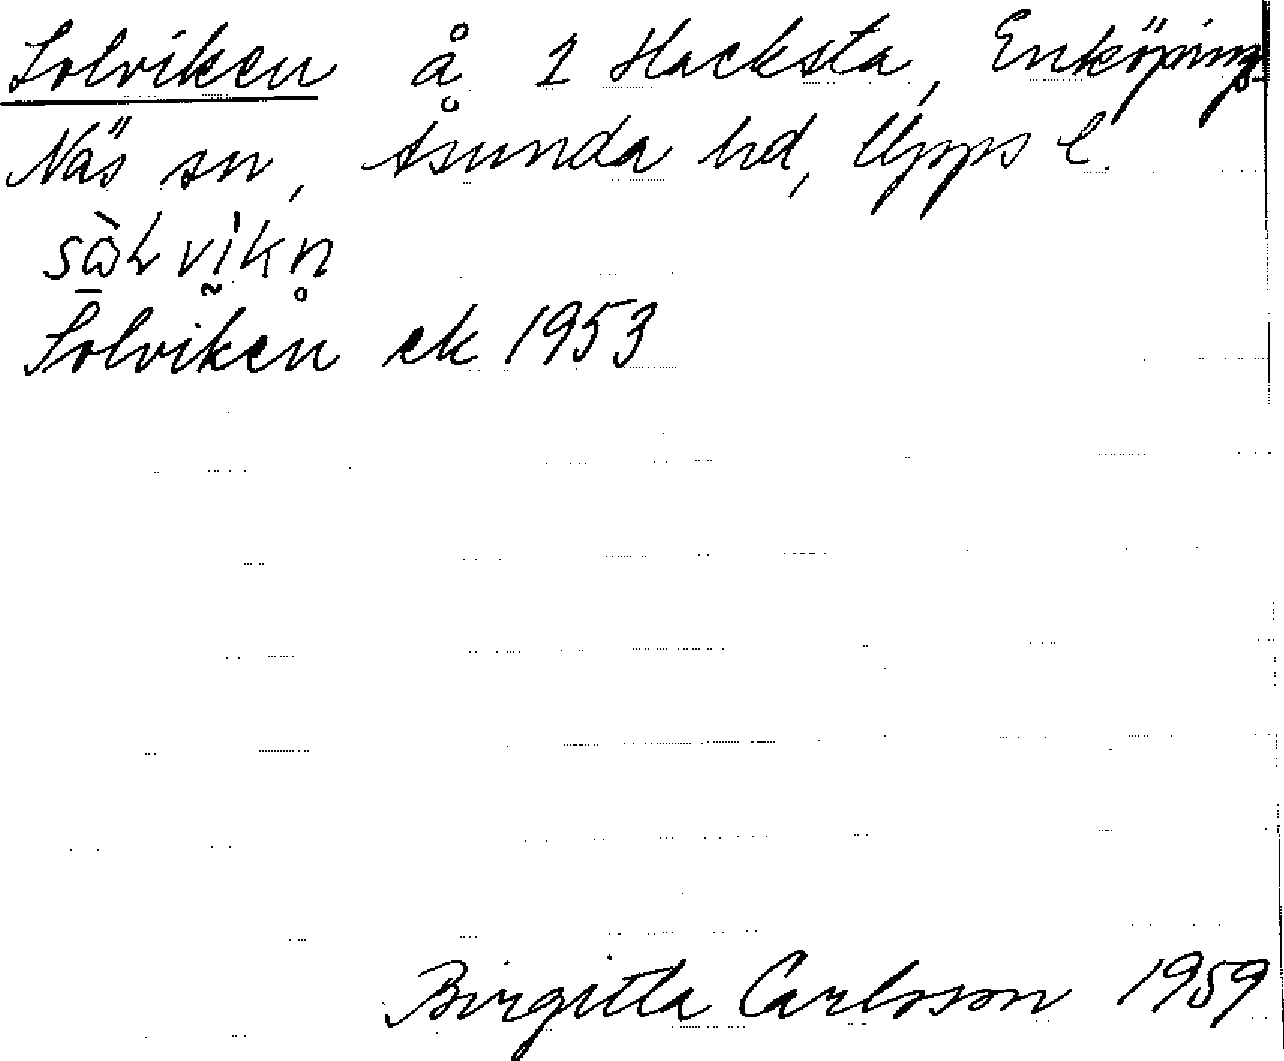 Solviken å 1 Hacksta, Enköpings-
Näs sn, Åsunda hd, Upps l.
Solviken ek 1953
Birgitta Carlsson 1959